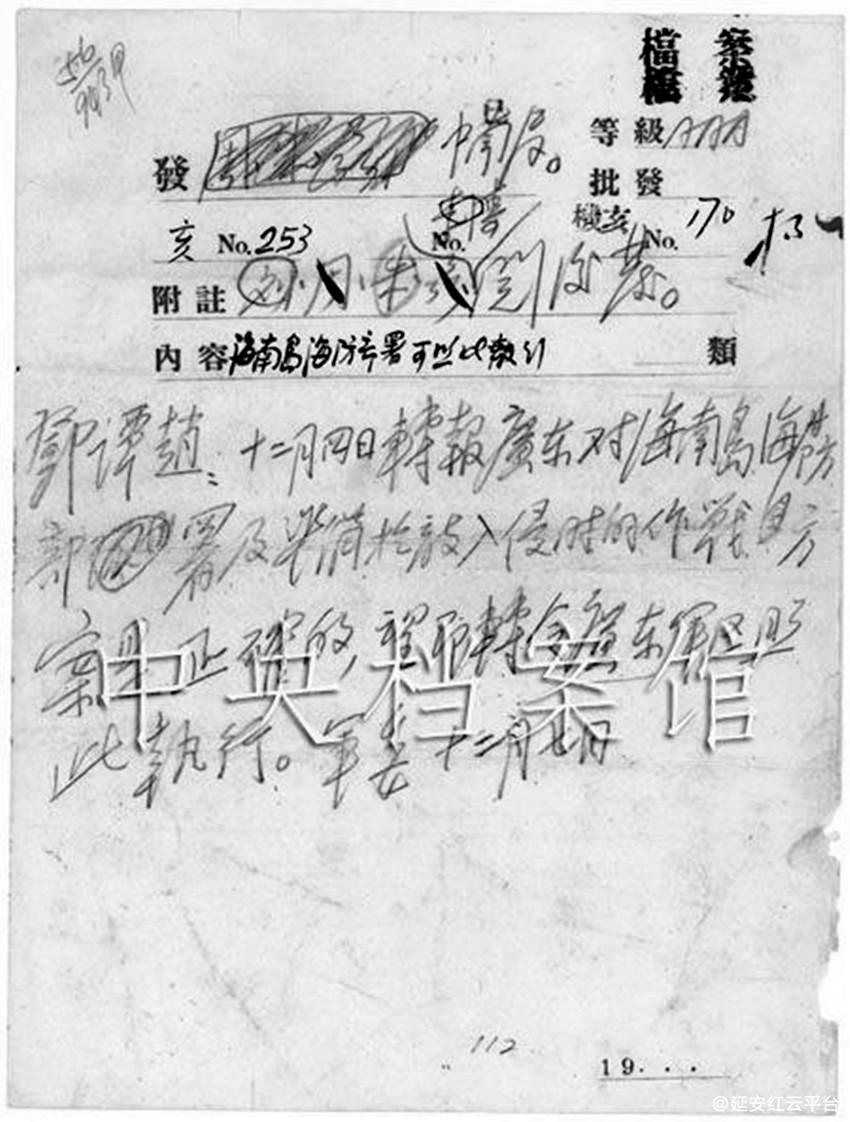 檔案
等級 AAAA
發 中南局。
批發
亥 No. 253 No. 機亥 No. 170
附註
內容 海南島海防部署可照此執行 類
鄧譚趙：十二月四日轉報廣东对海南島海防
部署及準備於敌入侵时的作戰方
案是正確的，望即轉令廣东軍区照
此執行。軍委 十二月七日
中央档案馆
112
19...
@延安红云平台